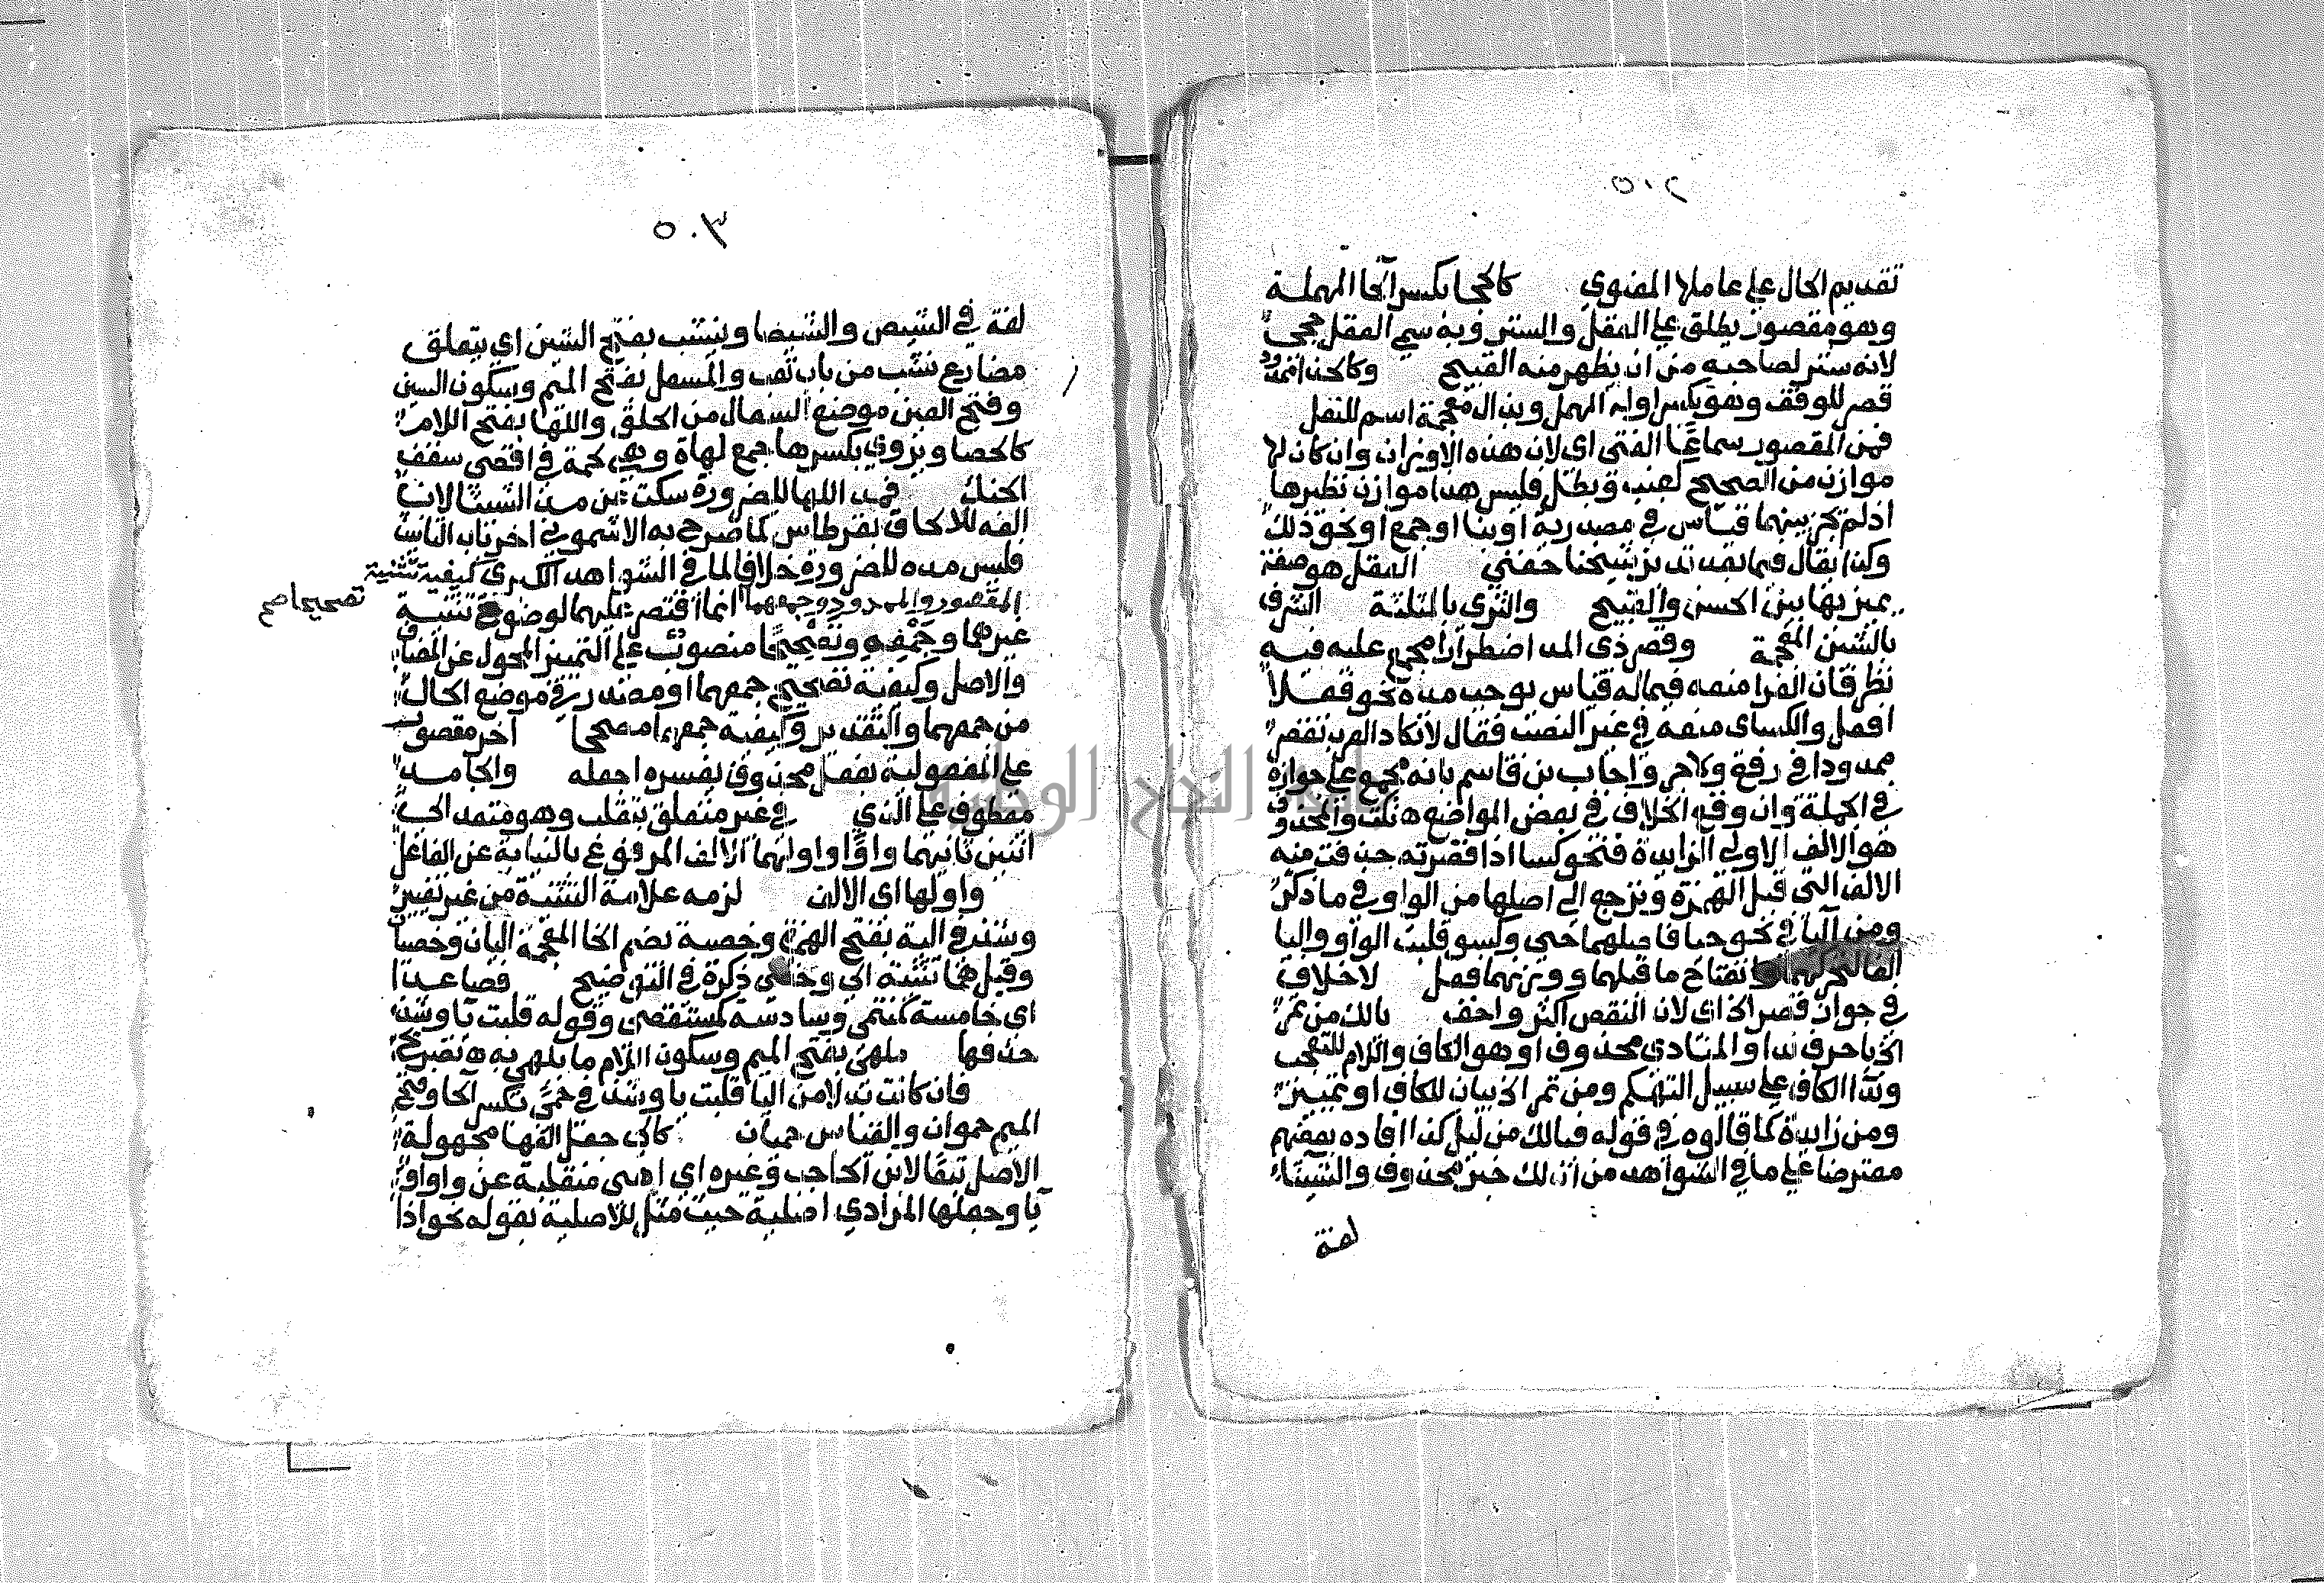 ٥٠٢
تقديم الحال على عاملها المعنوي كالحجا بكسر الحا المهملة
وهو مقصور يطلق على العقل والستر وبه سمي العقل حجى
لانه ستر لصاحبه من ان يظهر منه القبيح وكالحذا ممدود
قصر للوقف وهو بكسر اوله المهمل وبذال معجمة اسم للنعل
فمن المقصور سماعا الفتى اي لان هذه الاوزان وان كان لها
موازن من الصحيح لعنب وبطل فليس هذا موازن نظيرها
اذ لم يجر بينهما قياس في مصدرية او بنا او جمع او نحو ذلك
وكذا يقال فيما بعد تدبر شيخنا حفني العقل هو صفة
يميز بها بين الحسن والقبيح والثرى بالمثلثة الشرف
بالشين المعجمة وقصر ذي المد اضطرارا مجمع عليه فيه
نظر فان الفرا منعه فيما له قياس يوجب مده نحو فعلا
افعل والكساى منعه في غير النصب فقال لا تكاد العرب تقصر
ممدودا في رفع ولا جر واجاب بن قاسم بانه مجمع على جوازه
في الجملة وان وقع الخلاف في بعض المواضع ه نكت والمحذوف
هو الالف الاولى الزايدة فنحو كسا اذا قصرته حذفت منه
الالف التي قبل الهمزة ويرجع الى اصلها من الواو في ما ذكر
ومن اليا في نحو حيا فاصلهما حيي وكسو قلبت الواو واليا
الفا لتحركهما وانفتاح ما قبلهما ووزنهما فعل لا خلاف
في جواز قصر الخ اي لان النقص اكثر واخف يالك من تمر
الخ يا حرف ندا والمنادى محذوف او هو الكاف واللام للتعجب
وندا الكاف على سبيل التهكم ومن تمر الخ بيان للكاف او تمييز
ومن زايدة كما قالوه في قوله فيالك من ليل كذا افاده بعضهم
معترضا على ما في الشواهد من ان لك خبر محذوف والشيشاء
لغة
٥٠٣
لغة في الشيص والشيصا وينشب بفتح الشين اي يتعلق
مضارع نشب من باب تعب والمسعل بفتح الميم وسكون السين
وفتح العين موضع السعال من الحلق واللها بفتح اللام
كالحصا ويروى بكسرها جمع لهاة وهي لحمة في اقصى سقف
الحنك فمد اللها للضرورة سكت عن مد الشيشا لان
الفه للالحاق بقرطاس كما صرح به الاشموني اخر باب التانيث
فليس مده للضرورة خلافا لما في الشواهد الكبرى كيفية تثنية
المقصور والممدود وجمعهما تصحيحا صح انما اقتصر عليهما لوضوح تثنية
غيرهما وجمعه وتصحيحا منصوب على التمييز المحول عن المضاف
والاصل وكيفية تصحيح جمعهما او مصدر في موضع الحال
من جمعهما والتقدير وكيفية جمعهما مصححا اخر مقصور
على المفعولية بفعل محذوف يفسره اجعله والجامد
معطوف على الذي في غير متعلق بتقلب وهو متعد الى
اثنين ثانيهما واوا واولهما الالف المرفوع بالنيابة عن الفاعل
واولها اي الالف لزمه علامة التثنية من غير تغيير
وشذ في الية بفتح الهمزة وخصية بضم الخا المعجمة اليان وخصيان
وقيل هما تثنية الى وخصى ذكره في التوضيح فصاعدا
اي خامسة كمنتمى وسادسة كمستقصى وقوله قلبت يا وشذ
حذفها ملهى بفتح الميم وسكون اللام ما يلهى به ه تصريح
فان كانت بدلا من اليا قلبت يا وشذ في حمى بكسر الحا وفتح
الميم حموان والقياس حميان كالى جعل الفها مجهولة
الاصل تبعا لابن الحاجب وغيره اي اهي منقلبة عن واو او
يا وجعلها المرادي اصلية حيث مثل للاصلية بقوله نحو اذا